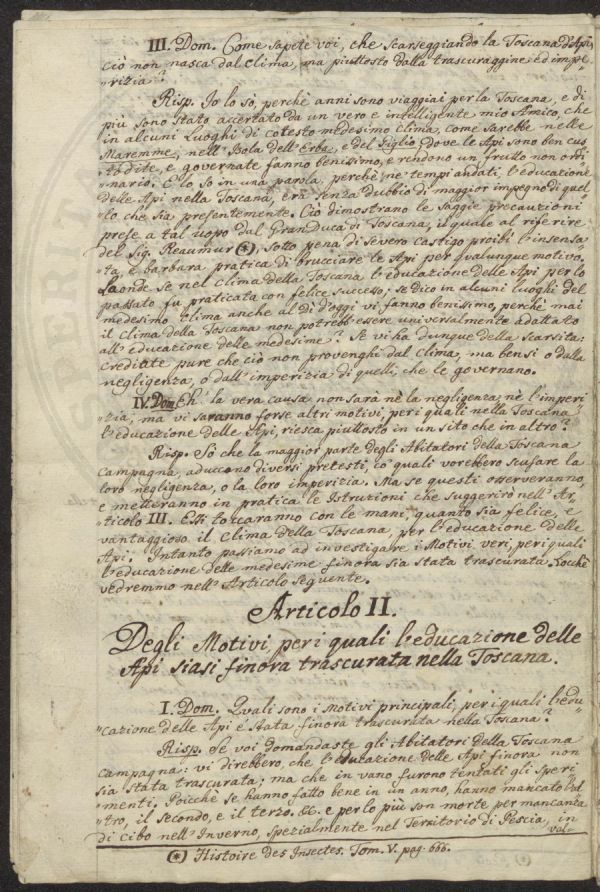 III. Dom. Come sapete voi, che scarseggiando la Toscana d'Api,
ciò non nasca dal clima, ma piuttosto dalla trascuraggine ed impe-
"rizia?
Risp. Io lo sò, perchè anni sono viaggiai per la Toscana, e di
più sono stato accertato da un vero e intelligente mio Amico, che
in alcuni Luoghi di cotesto medesimo clima, come sarebbe nelle
Maremme, nell'Isola dell'Erba, e del Giglio, dove le Api sono ben cus
"todite, e governate fanno benissimo, e rendono un frutto non ordi
"nario. E lo so in una parola, perchè ne' tempi andati, l'educazione
delle Api nella Toscana, era senza dubbio di maggior impegno di quel
"lo che sia presentemente. Ciò dimostrano le saggie precauzioni
prese a tal uopo dal Gran Duca di Toscana, il quale al riferire
del Sig. Reaumur (*), sotto pena di severo castigo proibì l'insensa
"ta, e barbara pratica di brucciare le Api per qualunque motivo.
Laonde se nel clima della Toscana l'educazione delle Api per lo
passato fu praticata con felice successo; se dico in alcuni luoghi del
medesimo clima anche al dì d'oggi vi fanno benissimo, perchè mai
il clima della Toscana non potrebb'essere universalmente adattato
all'educazione delle medesime? Se vi ha dunque della scarsità:
crediate pure che ciò non provenghi dal clima, ma bensì o dalla
negligenza, o dall'imperizia di quelli, che le governano.
IV. Dom. Eh! la vera causa non sarà nè la negligenza, nè l'imperi
"zia; ma vi saranno forse altri motivi, per i quali nella Toscana
l'educazione delle Api, riesca piuttosto in un sito che in altro?
Risp. Sò che la maggior parte degli Abitatori della Toscana
campagna, aducono diversi pretesti, co' quali vorebbero scusare la
loro negligenza, o la loro imperizia. Ma se questi osserveranno,
e metteranno in pratica le Istruzioni che suggerirò nell'Ar,
"ticolo III. Essi toccaranno con le mani, quanto sia felice, e
vantaggioso il clima della Toscana, per l'educazione delle
Api. Intanto passiamo ad investigare i Motivi veri, per i quali
l'educazione delle medesime finora sia stata trascurata. Locchè
vedremmo nell'Articolo seguente.
Articolo II.
Degli Motivi per i quali l'educazione delle
Api siasi finora trascurata nella Toscana.
I. Dom. Quali sono i Motivi principali, per i quali l'edu-
"cazione delle Api è stata finora trascurata nella Toscana?
Risp. Se voi domandaste gli Abitatori della Toscana
campagna: vi direbbero, che l'educazione delle Api finora non
sia stata trascurata; ma che in vano furono tentati gli speri
"menti. Poicchè se hanno fatto bene in un anno, hanno mancato l'al-
"tro, il secondo, e il terzo. &c. e per lo più son morte per mancanza
di cibo nell'Inverno, spezialmente nel Territorio di Pescia, in
val-
(*) Histoire des Insectes. Tom. V. pag. 666.